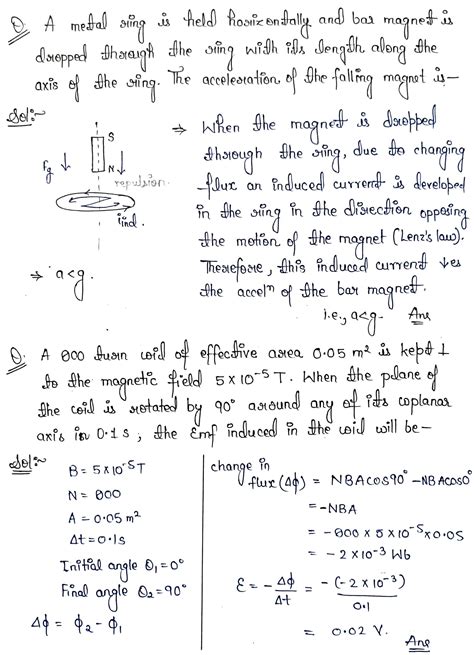 Q. A metal ring is held horizontally and bar magnet is
dropped through the ring with its length along the
axis of the ring. The acceleration of the falling magnet is-
Sol:~
S
N
Fg
repulsion
iind.
⇒ a<g.
⇒ When the magnet is dropped
through the ring, due to changing
flux an induced current is developed
in the ring in the direction opposing
the motion of the magnet (Lenz's law).
Therefore, this induced current ↓es
the acceln of the bar magnet.
i.e., a<g. Ans
Q. A 000 turn coil of effective area 0.05 m² is kept ⊥
to the magnetic field 5×10⁻⁵ T. When the plane of
the coil is rotated by 90° around any of its coplanar
axis in 0.1 s, the Emf induced in the coil will be-
Sol:~
B = 5×10⁻⁵T
N = 000
A = 0.05 m²
Δt = 0.1s
Initial angle θ₁ = 0°
Final angle θ₂ = 90°
Δϕ = ϕ₂ - ϕ₁
change in
flux (Δϕ) = NBA cos90° - NBA cos0°
= -NBA
= -000 × 5 × 10⁻⁵ × 0.05
= -2 × 10⁻³ Wb
ε = -Δϕ/Δt = -(-2 × 10⁻³)/0.1
= 0.02 V.
Ans